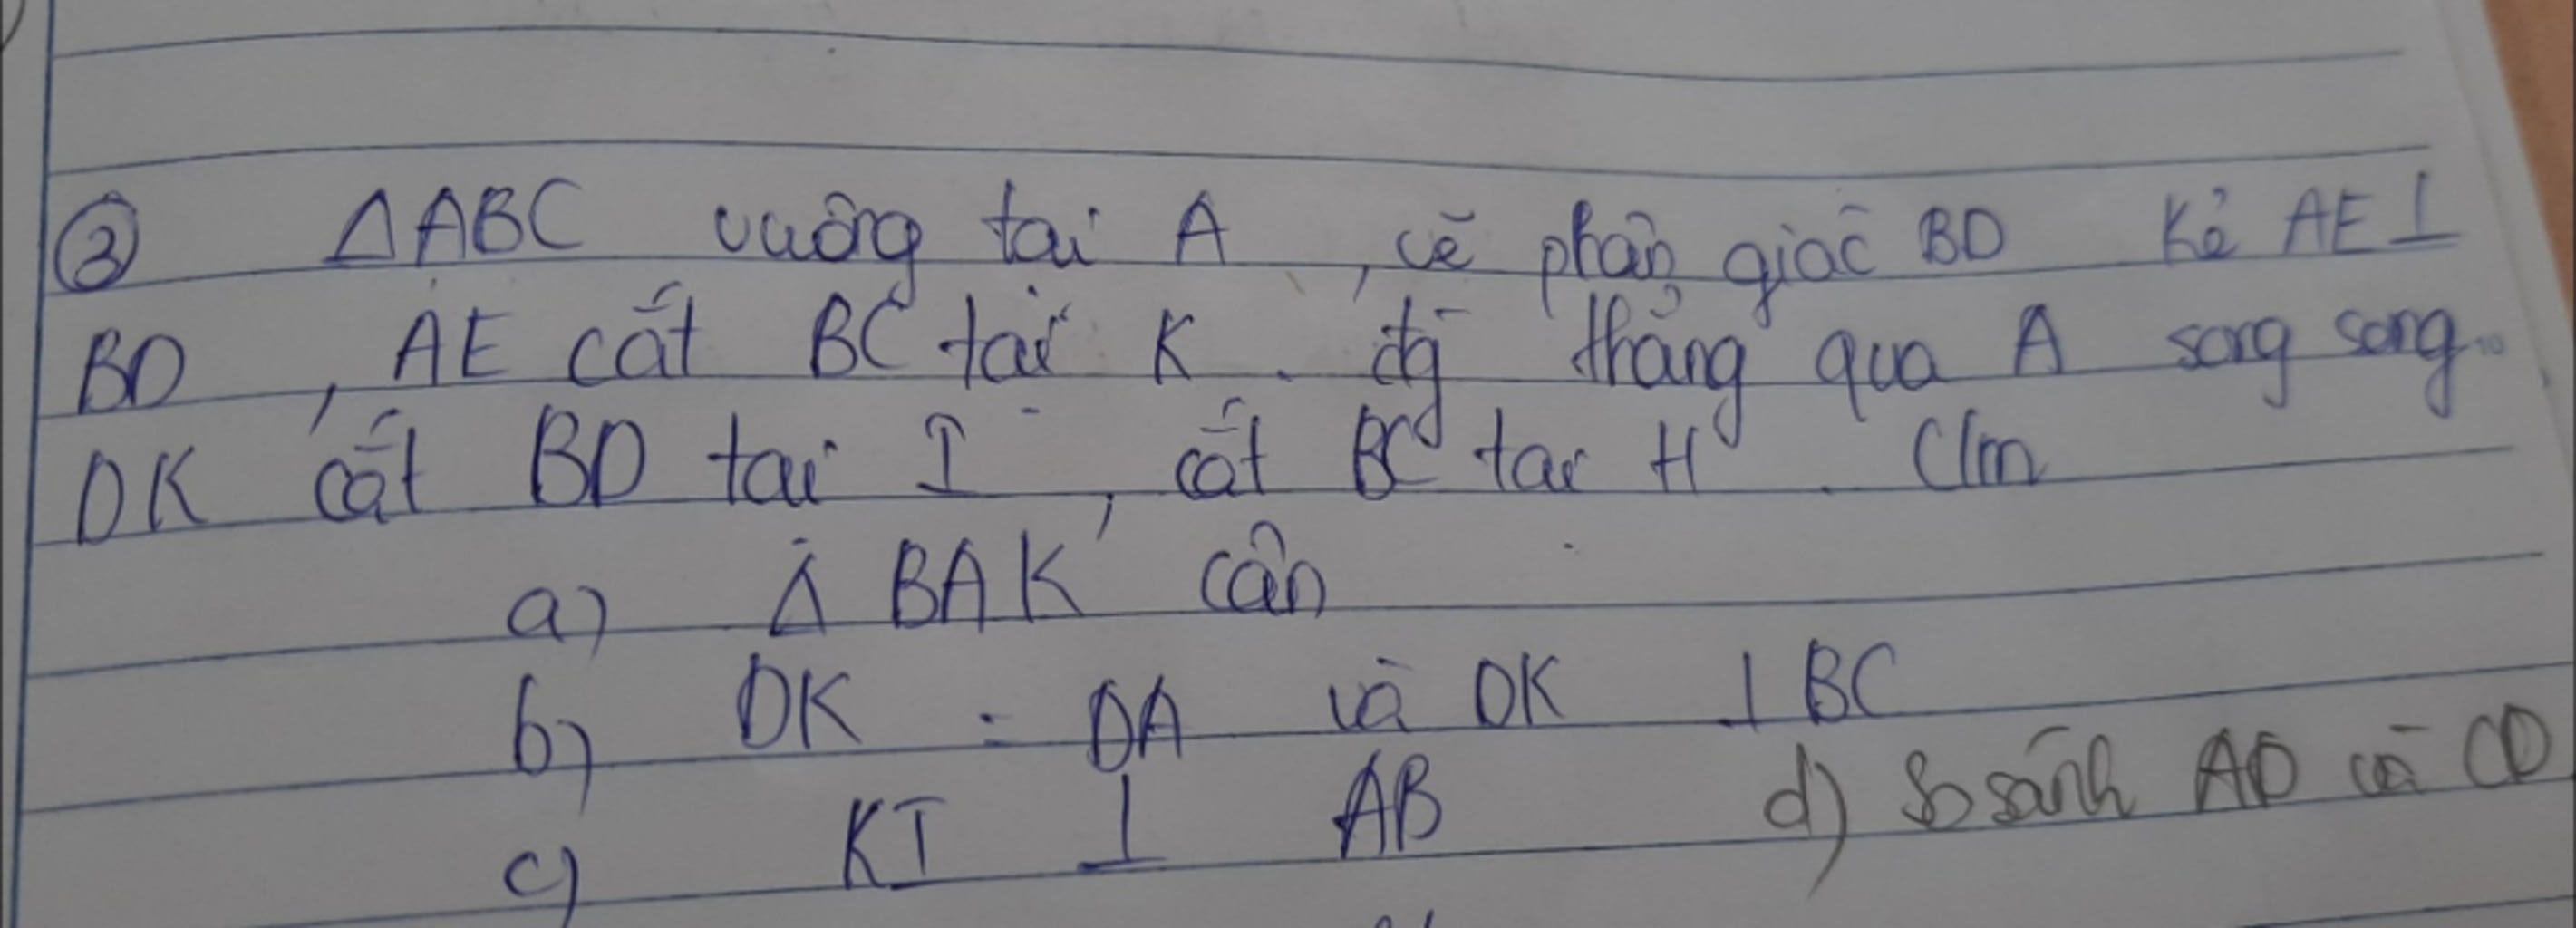 ② ΔABC vuông tại A, vẽ phân giác BD Kẻ AE ⊥
BD, AE cắt BC tại K. đg thẳng qua A song song
DK cắt BD tại I, cắt BC tại H. C/m
a) Δ BAK cân
b) DK = DA và DK ⊥ BC
c) KI ⊥ AB d) So sánh AD và CD